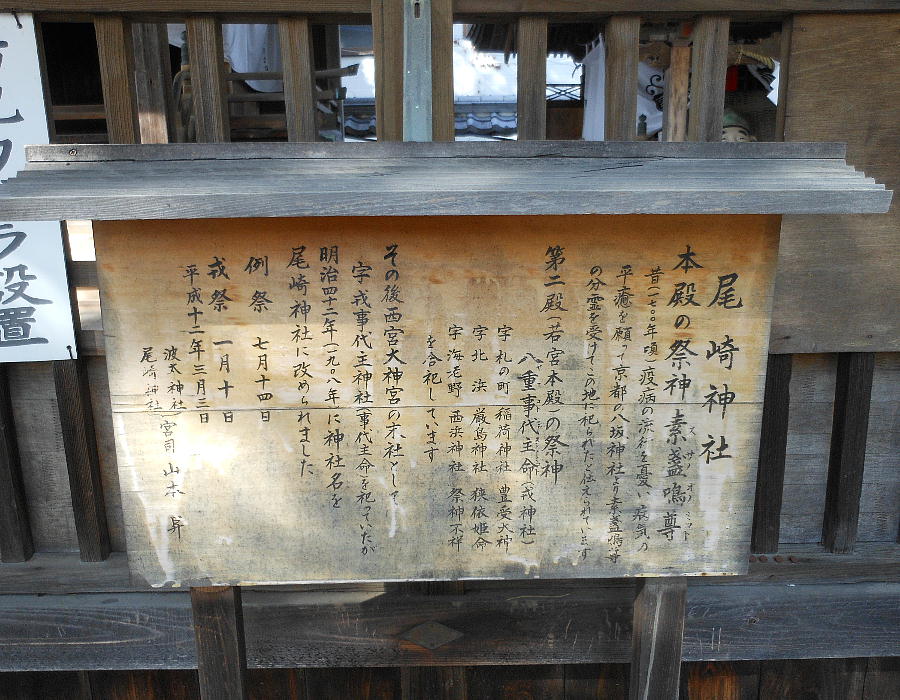 尾崎神社
本殿の祭神 素盞嗚尊
スサノオノミコト
昔(一七〇〇年頃)疫病の流行を憂い、病気の
平癒を願って京都の八坂神社より素盞嗚尊
の分霊を受けてこの地に祀られたと伝えられています
第二殿(若宮本殿)の祭神
八重事代主命(戎神社)
字 札の町 稲荷神社 豊受大神
字 北浜 厳島神社 狭依姫命
字 海老野 西浜神社 祭神不祥
を合祀しています
その後西宮大神宮の末社として
字戎事代主神社(事代主命を祀っていたが
明治四十二年(一九〇八年)に神社名を
尾崎神社に改められました
例祭 七月十四日
戎祭 一月十日
平成十二年三月三日
波太神社
尾崎神社 宮司 山本 昇
設置